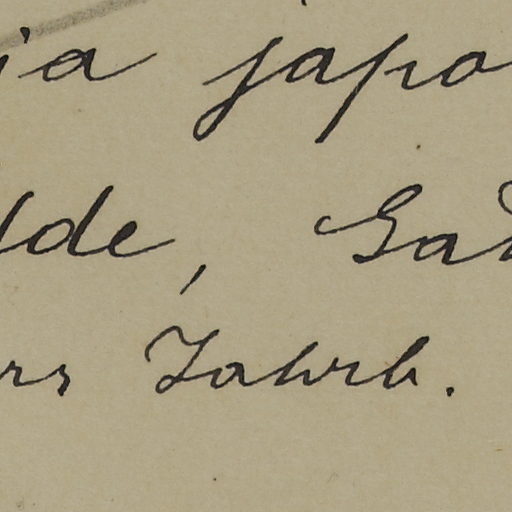 ia japo
lde, Gat
rs Jahrb.